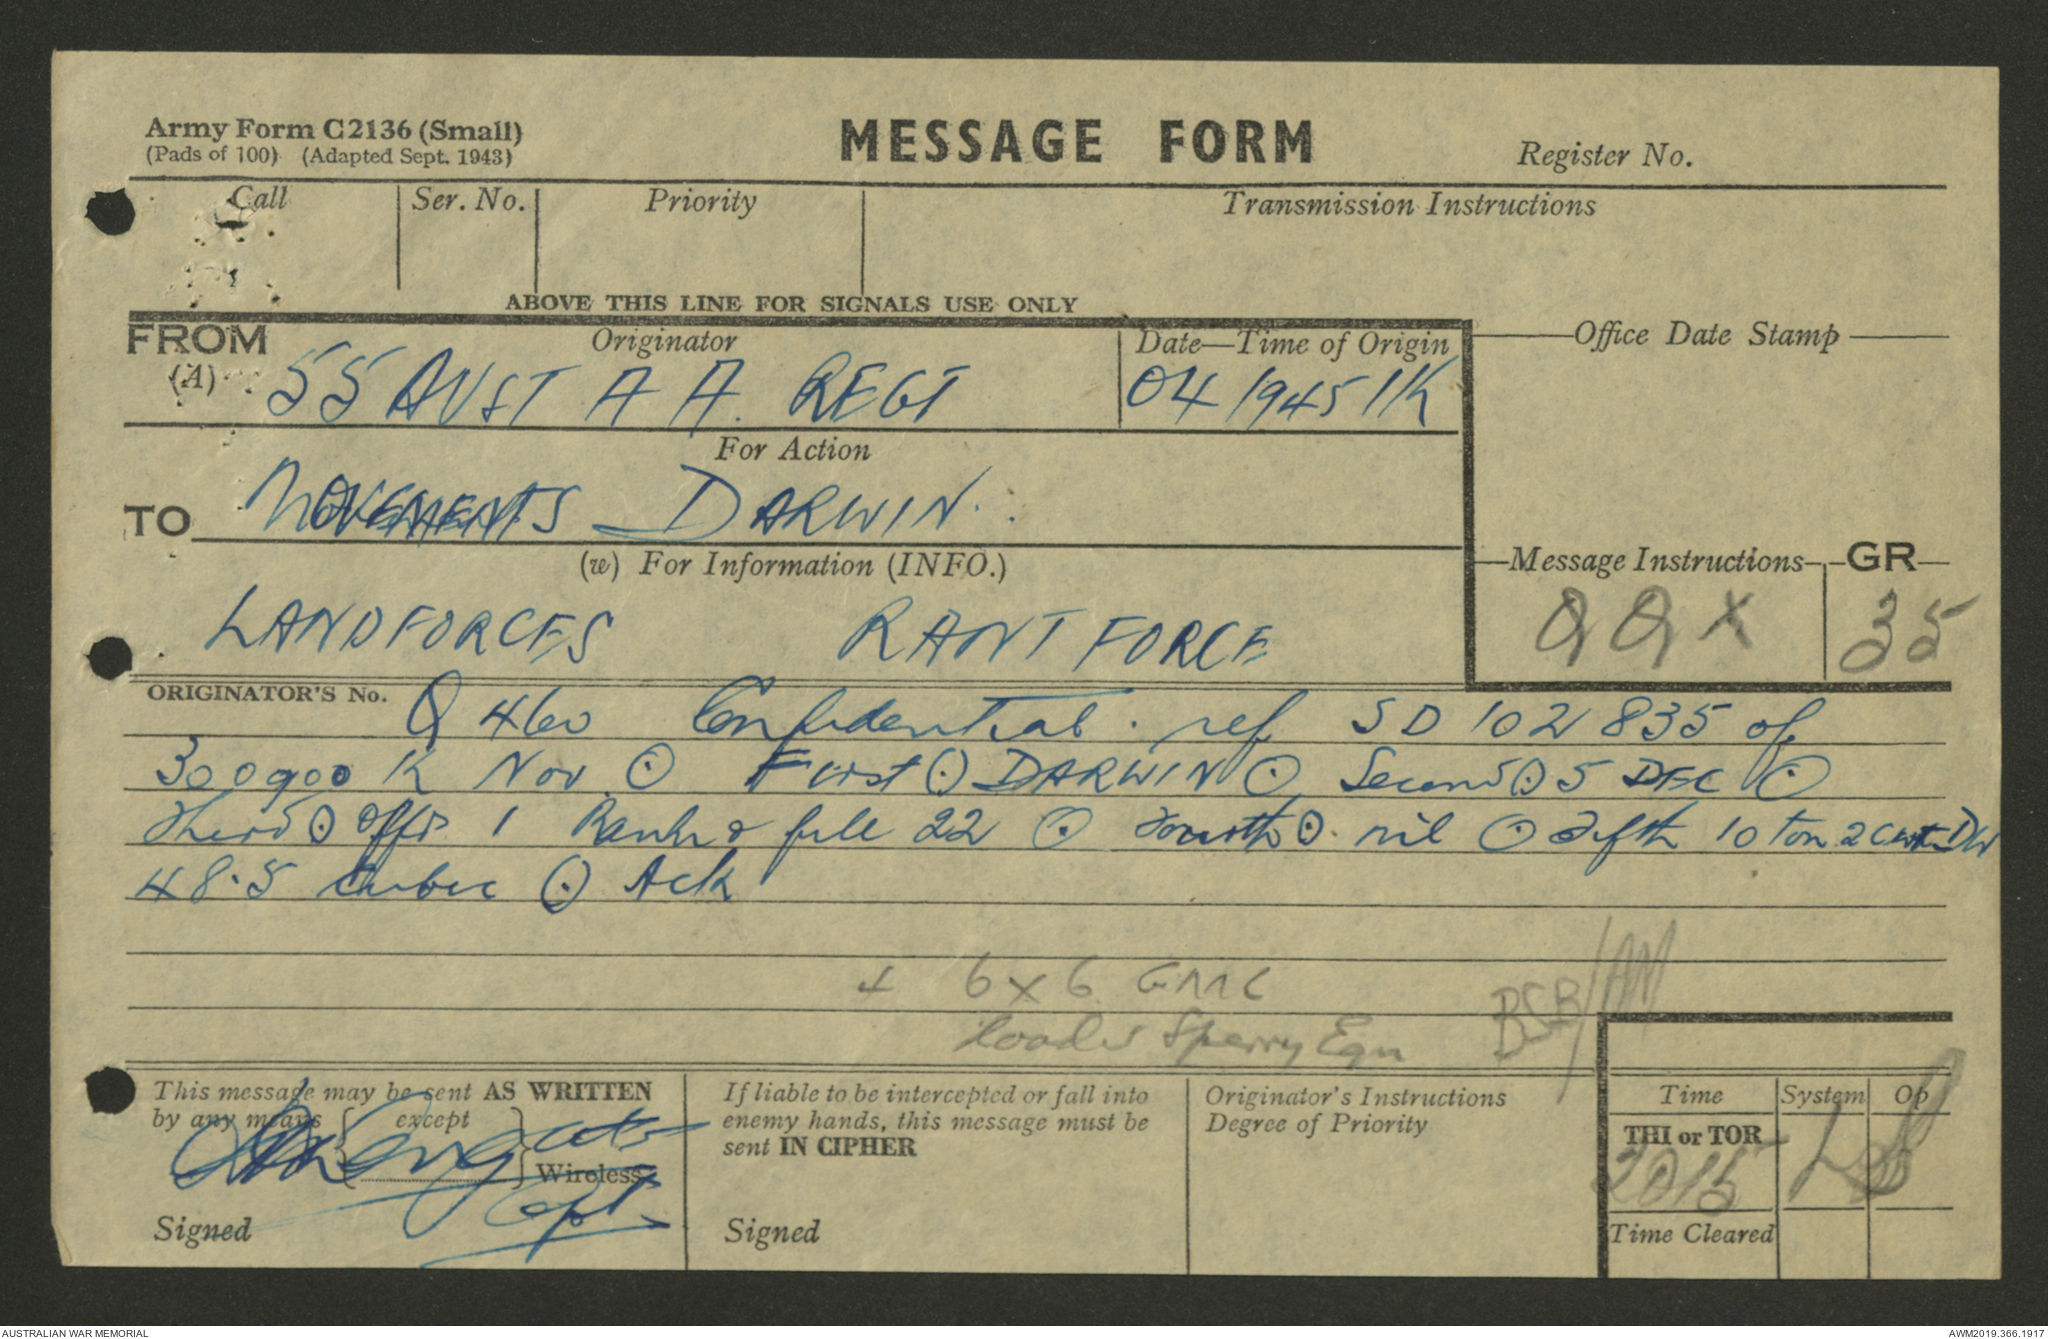 Army Form C2136 (Small)
(Pads of 100) (Adapted Sept. 1943)
MESSAGE FORM
Register No.
Call
Ser. No.
Priority
Transmission Instructions
ABOVE THIS LINE FOR SIGNALS USE ONLY
FROM
(A)
Originator
55 AUST A A. REGT
Date—Time of Origin
041945/K
Office Date Stamp
For Action
TO
MOVEMENTS DARWIN.
(w) For Information (INFO.)
LANDFORCES RANTFORCE
Message Instructions
QQX
GR
35
ORIGINATOR'S No.
Q 460 Confidential. ref SD 102835 of
300900 K Nov ⊙ First ⊙ DARWIN ⊙ Second ⊙ 5 DEC ⊙
Third ⊙ Offrs 1 Rank & file 22 ⊙ Fourth ⊙ nil ⊙ Fifth 10 ton 2 cwt DW
48.5 cubic ⊙ Ack
6 x 6 GMC
loaded Sperry Eqn
BSB/AM
This message may be sent AS WRITTEN
by any means except
Wireless
Capt
Signed
If liable to be intercepted or fall into
enemy hands, this message must be
sent IN CIPHER
Signed
Originator's Instructions
Degree of Priority
Time
System
Op
THI or TOR
2015
Time Cleared
AUSTRALIAN WAR MEMORIAL
AWM2019.366.1917